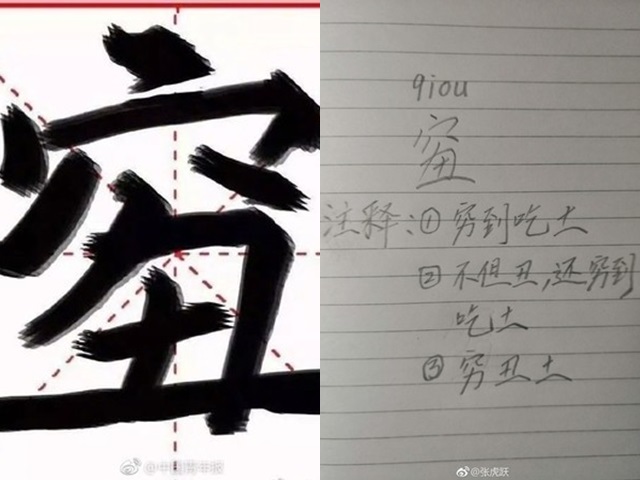 qiou
注释:①穷到吃土
②不但丑,还穷到
吃土
③穷丑土
@中国青年报
@张虎跃